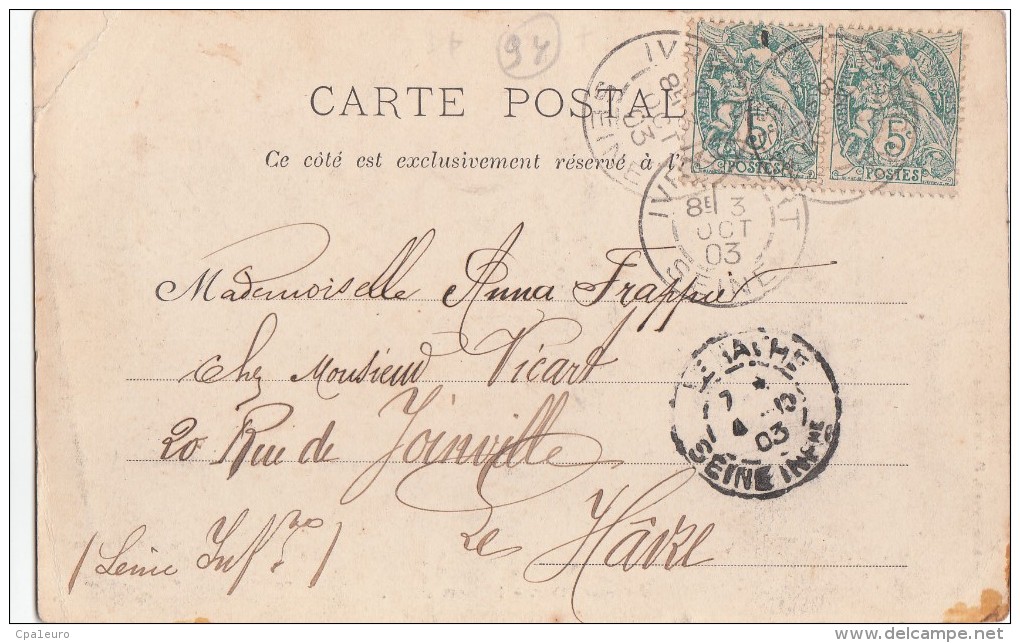 94
CARTE POSTAL
Ce côté est exclusivement réservé à l'
5c 5c
POSTES POSTES
8E 3
OCT
03
SEINE
Mademoiselle Anna Frappier
Chez Monsieur Vicart
20 Rue de Joinville
Le Hâvre
(Seine Infre)
LE HAVRE
7
4 10
03
SEINE INFRE
Cpaleuro
www.delcampe.net